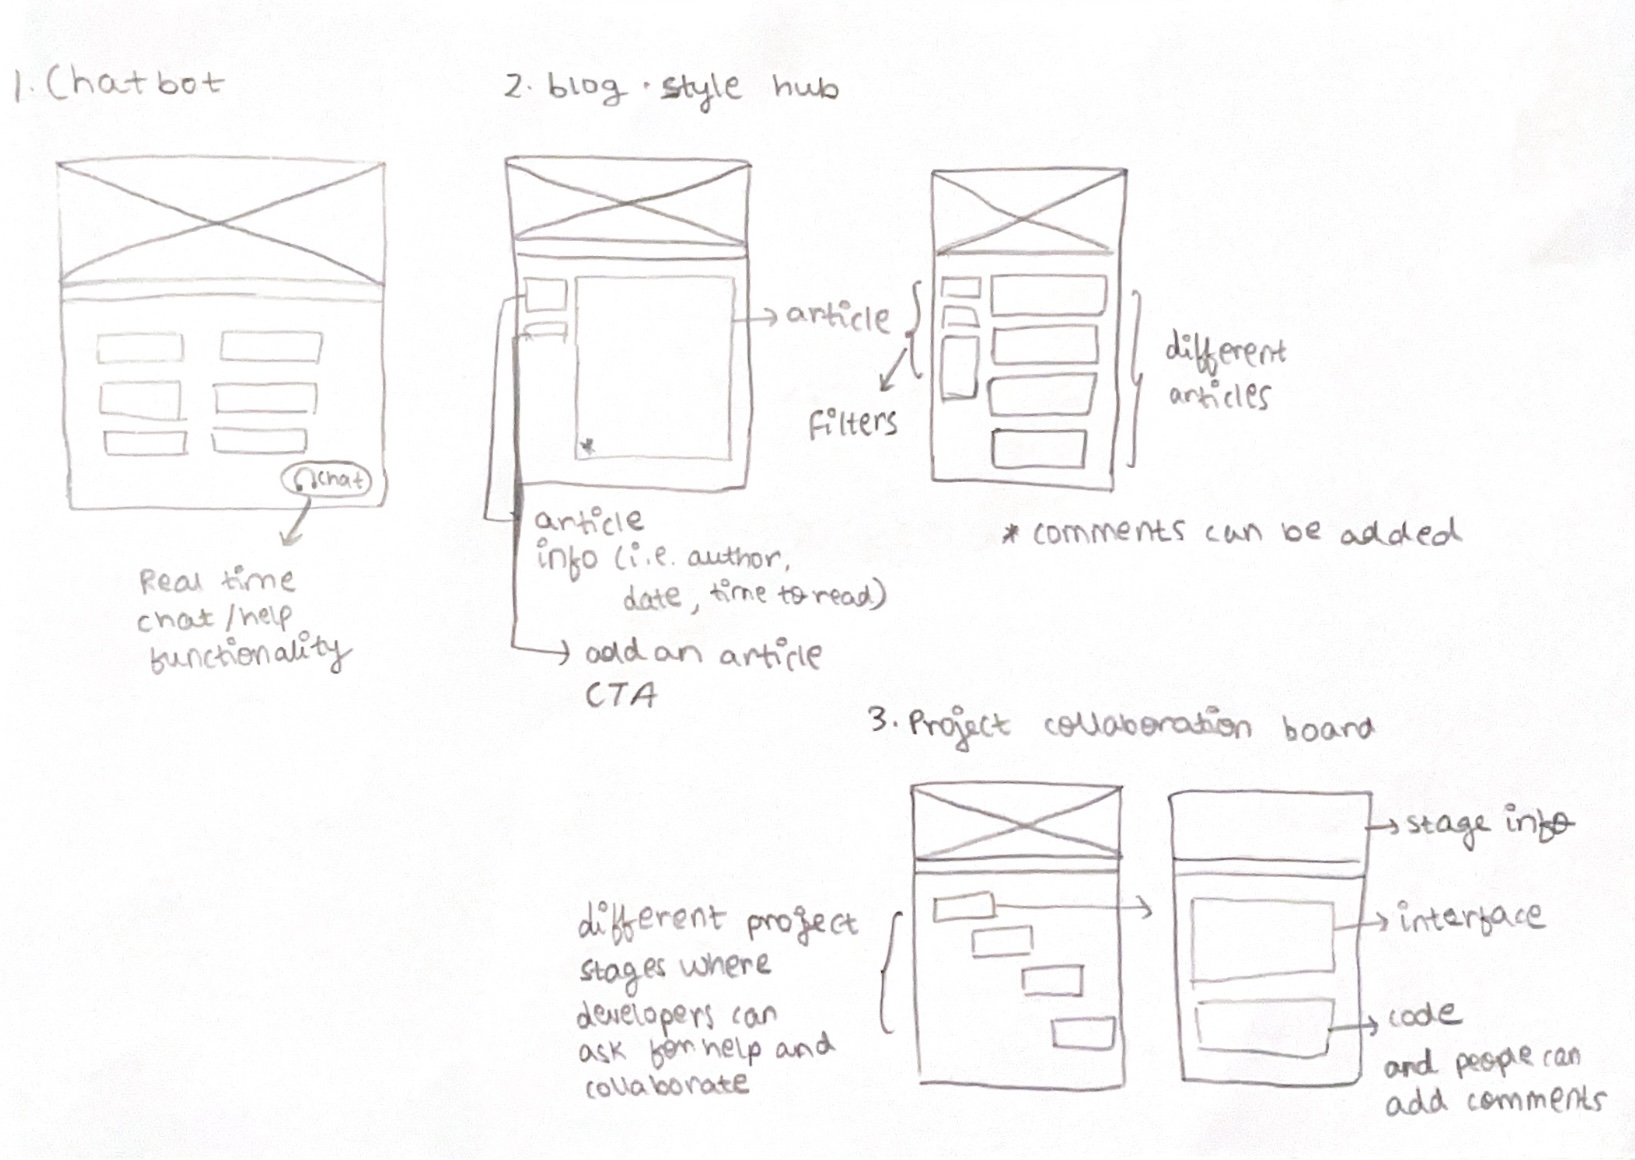 1. Chatbot
chat
Real time
chat/help
functionality
2. blog-style hub
article
article
info (i.e. author,
date, time to read)
add an article
CTA
filters
different
articles
* comments can be added
*
3. Project collaboration board
different project
stages where
developers can
ask for help and
collaborate
stage info
interface
code
and people can
add comments